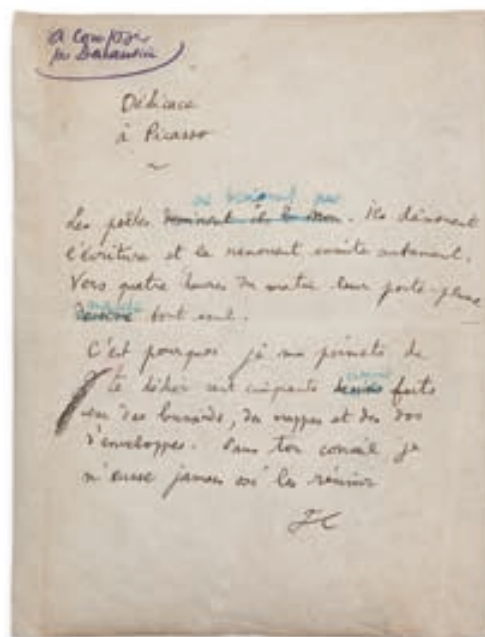 A composer
Dédicace
à Picasso
ne dessinent pas
Les poètes . Ils dénouent
l'écriture et la renouent ensuite autrement.
Vers quatre heures du matin leur porte-plume
tout seul.
C'est pourquoi je me permets de
te dédier cent cinquante faits
sur des buvards, des nappes et des dos
d'enveloppes. Sans ton conseil je
n'eusse jamais osé les réunir
JC